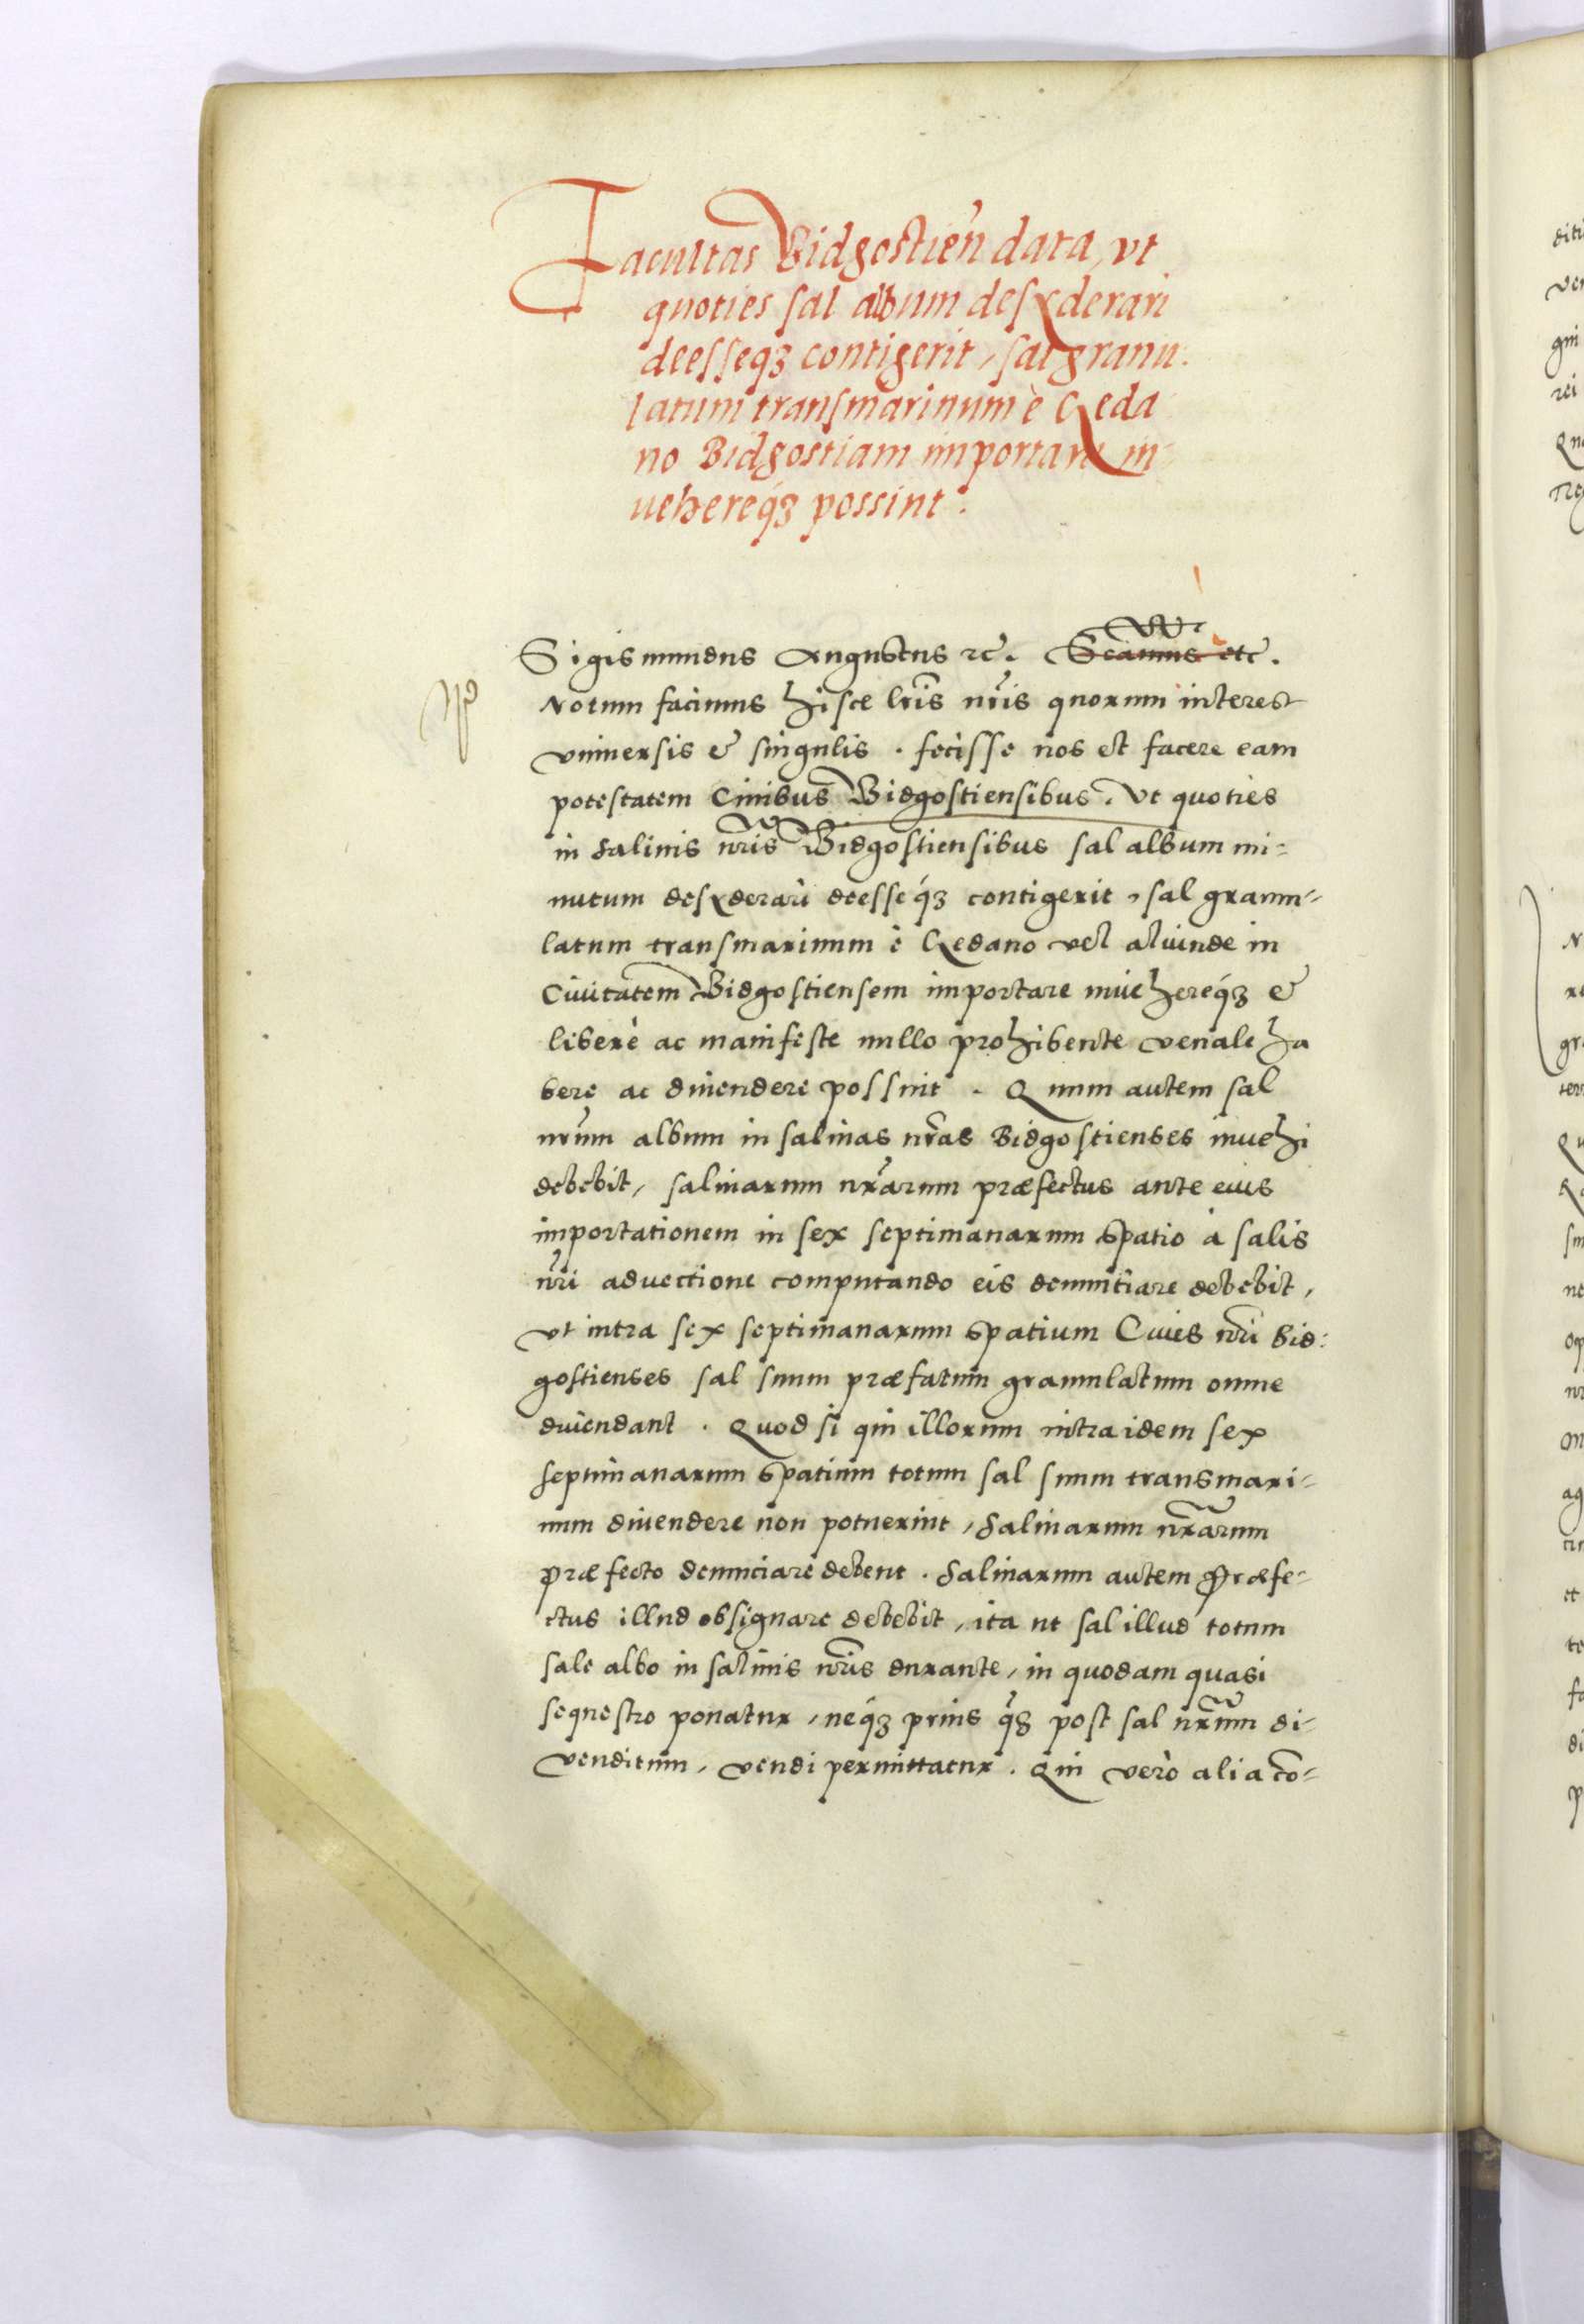 Facultas Bidgostien̄ data, vt
quoties sal album desyderari
deesseqꝫ contigerit, sal granu:
latum transmarinum è Geda
no Bidgostiam importare in
uehereqꝫ possint.
Sigismundus Augustus ꝛc. Scimus etc.
Notum facimus hisce lr̃is nr̃is quorum interest
vniuersis & singulis. fecisse nos et facere eam
potestatem Ciuibus Bidgostiensibus. Vt quoties
in salinis nr̃is Bidgostiensibus sal album mi=
nutum desyderari deesseqꝫ contigerit, sal granu=
latum transmarinum è Gedano vel aliunde in
Ciuitatem Bidgostiensem importare inuehereqꝫ &
liberè ac manifeste nullo prohibente venale ha
bere ac diuendere possint. Quum autem sal
nr̃um album in salinas nr̃as Bidgostienses inuehi
debebit, salinarum nr̃arum præfectus ante eius
importationem in sex septimanarum spatio à salis
nr̃i aduectione computando eis denuntiare debebit,
vt intra sex septimanarum spatium Ciues nr̃i Bid:
gostienses sal suum præfatum granulatum omne
diuendant. Quod si qui illorum intra idem sex
septimanarum spatium totum sal suum transmari=
num diuendere non potuerint, salinarum nr̃arum
præfecto denunciare debent. Salinarum autem Præfe=
ctus illud obsignare debebit, ita ut sal illud totum
sale albo in salinis nr̃is durante, in quodam quasi
sequestro ponatur, neqꝫ prius qꝫ post sal nr̃um di=
venditum, vendi permittatur. Qui verò alia co=